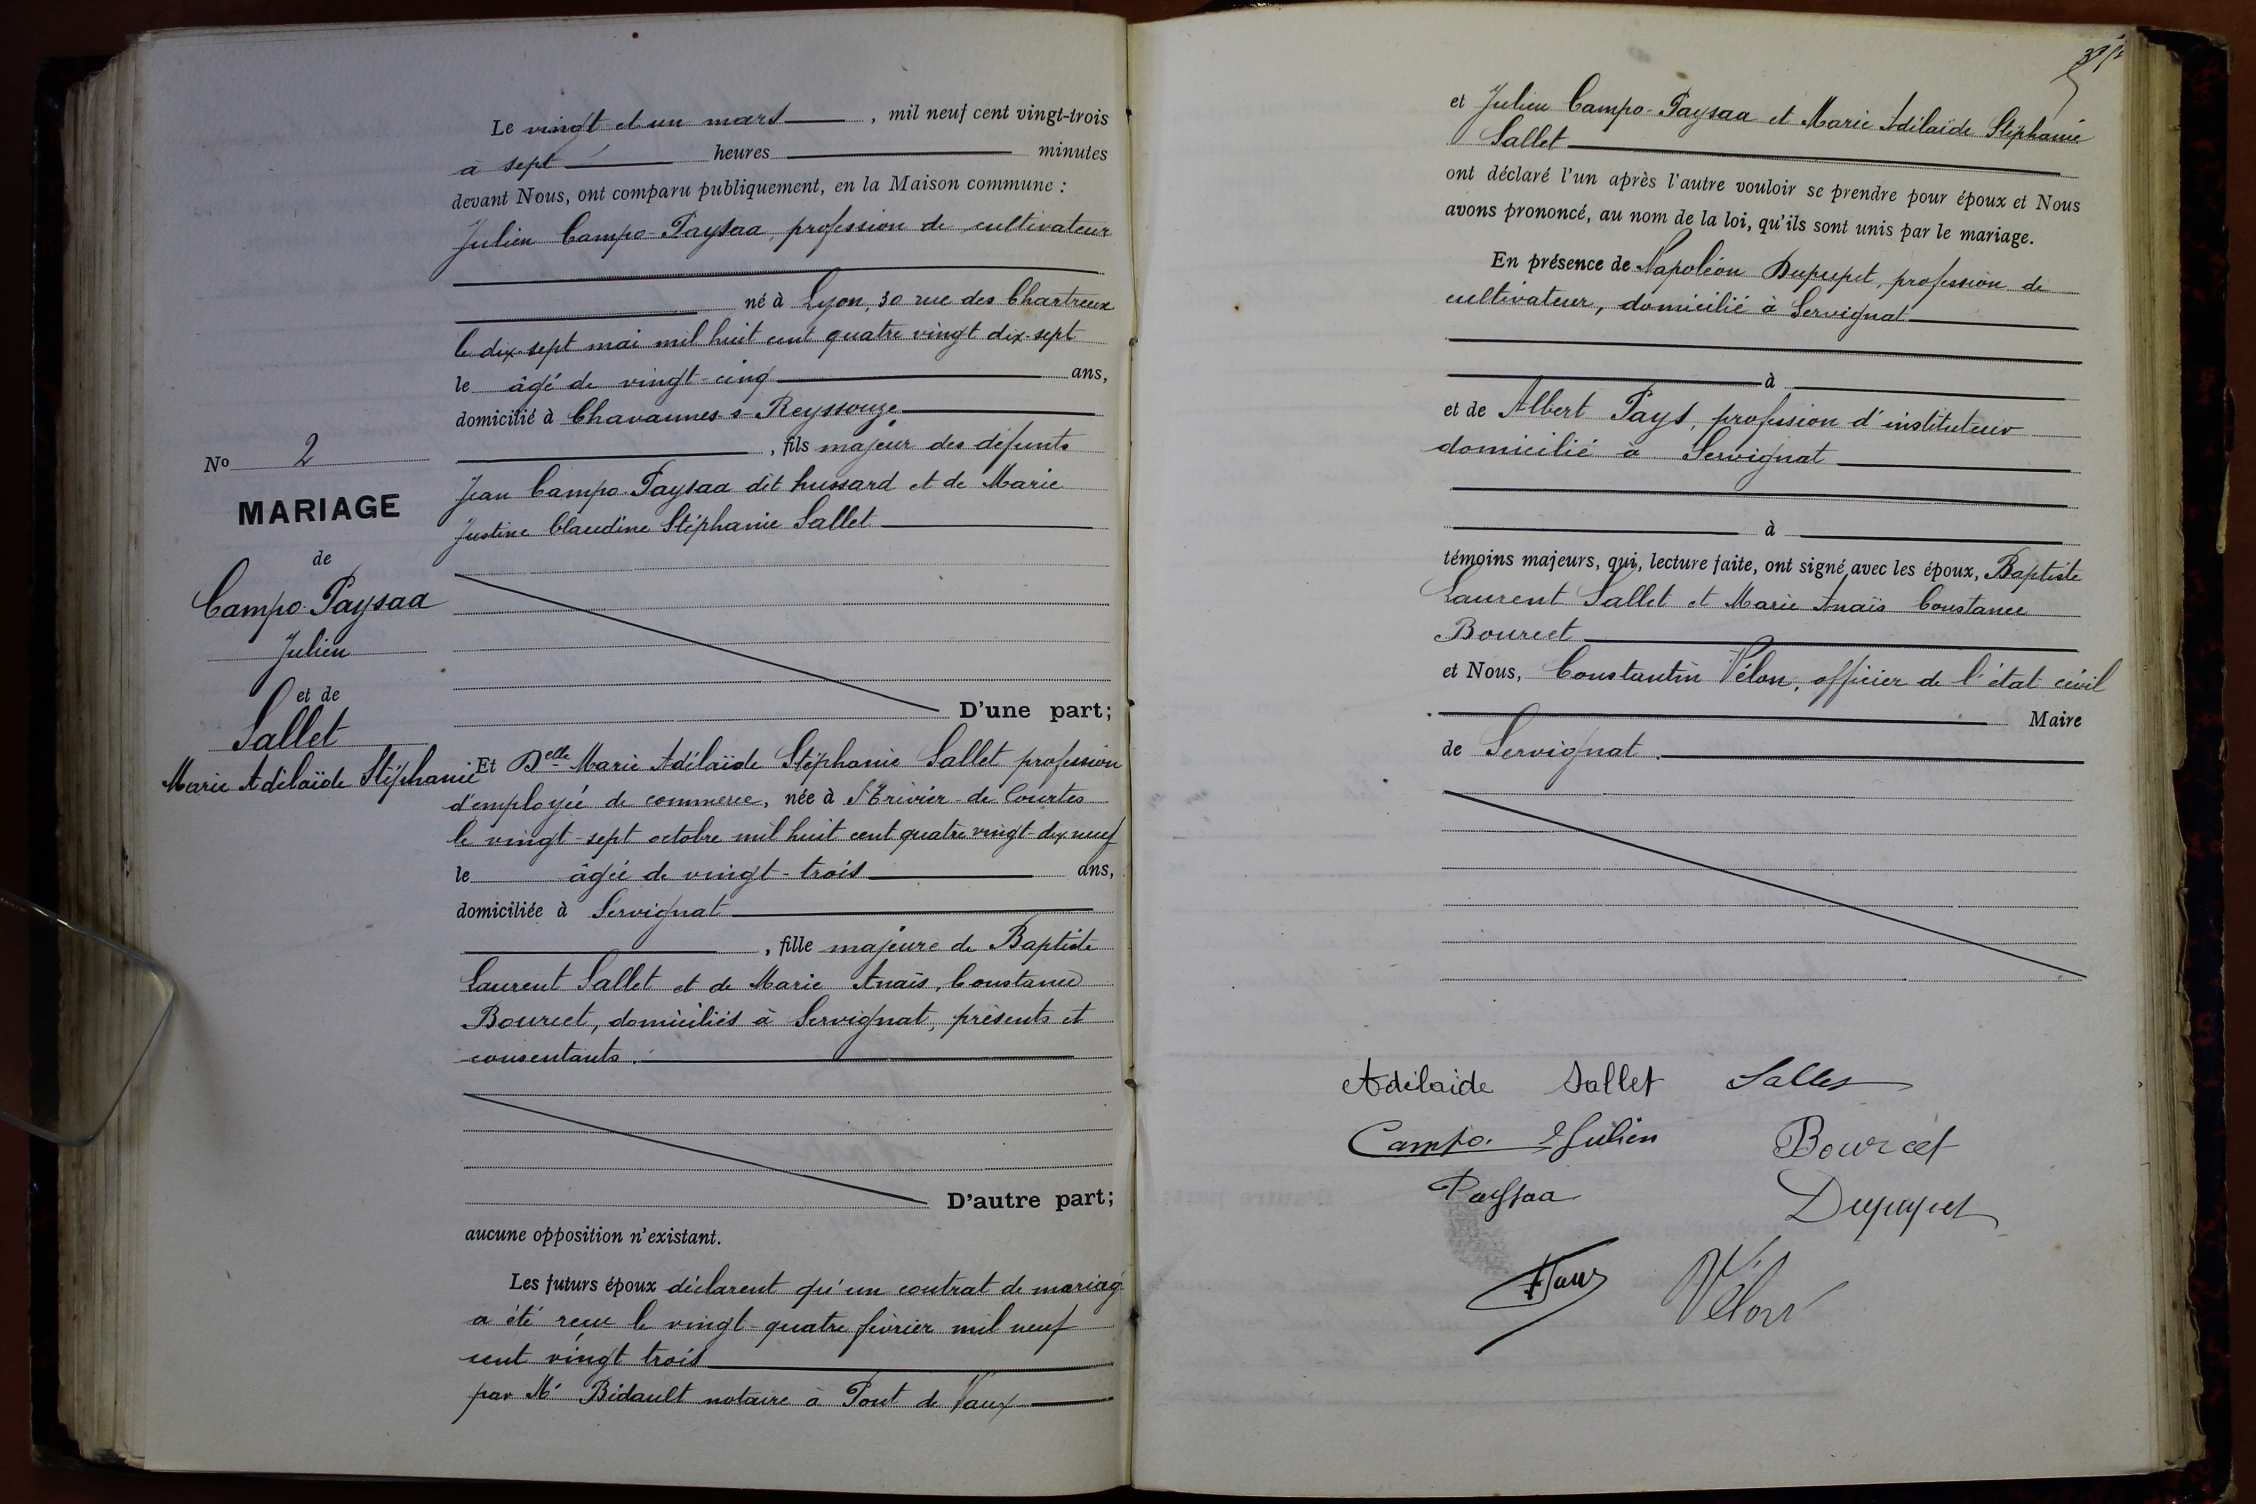 Le vingt et un mars, mil neuf cent vingt-trois
à sept heures minutes
devant Nous, ont comparu publiquement, en la Maison commune :
Julien Campo-Paysaa, profession de cultivateur
né à Lyon, 30 rue des Chartreux
le dix-sept mai mil huit cent quatre vingt dix-sept
le âgé de vingt-cinq ans,
domicilié à Chavannes s Reyssouze
, fils majeur des défunts
Jean Campo-Paysaa dit hussard et de Marie
Justine Claudine Stéphanie Sallet
D'une part;
No 2
MARIAGE
de
Campo-Paysaa
Julien
et de
Sallet
Marie Adélaïde Stéphanie
Et Delle Marie Adélaïde Stéphanie Sallet profession
d'employée de commerce, née à St Trivier-de-Courtes
le vingt-sept octobre mil huit cent quatre vingt-dix neuf
le âgée de vingt-trois ans,
domiciliée à Servignat
, fille majeure de Baptiste
Laurent Sallet et de Marie Anaïs, Constance
Bourcet, domiciliés à Servignat, présents et
consentants.
D'autre part;
aucune opposition n'existant.
Les futurs époux déclarent qu'un contrat de mariag
a été reçu le vingt-quatre février mil neuf
cent vingt trois
par Me Bidault notaire à Pont de Vaux
et Julien Campo-Paysaa et Marie Adélaïde Stéphanie
Sallet
ont déclaré l'un après l'autre vouloir se prendre pour époux et Nous
avons prononcé, au nom de la loi, qu'ils sont unis par le mariage.
En présence de Napoléon Dupupet, profession de
cultivateur, domicilié à Servignat
à
et de Albert Pays, profession d'instituteur
domicilié à Servignat
à
témoins majeurs, qui, lecture faite, ont signé avec les époux, Baptiste
Laurent Sallet et Marie Anaïs Constance
Bourcet
et Nous, Constantin Vélon, officier de l'état civil
Maire
de Servignat.
Adélaïde Sallet Sallet
Campo. Julien Bourcet
Paysaa Dupupet
Vélon